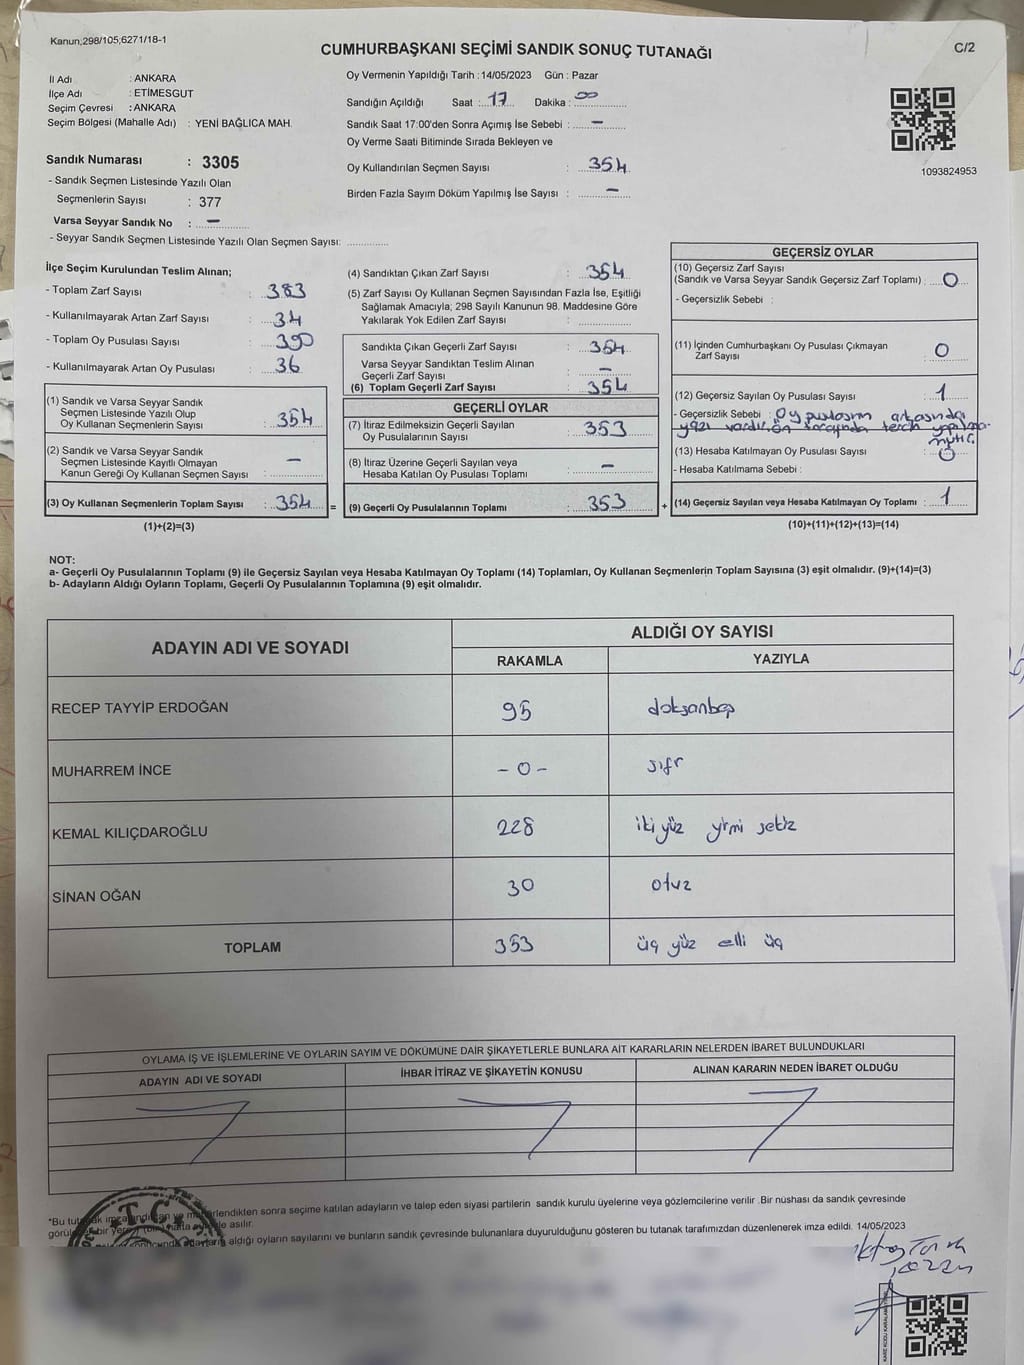 Kanun;298/105;6271/18-1
CUMHURBAŞKANI SEÇİMİ SANDIK SONUÇ TUTANAĞI
C/2
İl Adı : ANKARA
İlçe Adı : ETİMESGUT
Seçim Çevresi : ANKARA
Seçim Bölgesi (Mahalle Adı) : YENİ BAĞLICA MAH.
Sandık Numarası : 3305
- Sandık Seçmen Listesinde Yazılı Olan
Seçmenlerin Sayısı : 377
Varsa Seyyar Sandık No : –
- Seyyar Sandık Seçmen Listesinde Yazılı Olan Seçmen Sayısı: ..............
Oy Vermenin Yapıldığı Tarih : 14/05/2023 Gün : Pazar
Sandığın Açıldığı Saat : 17 Dakika : 00
Sandık Saat 17:00'den Sonra Açımış İse Sebebi : –
Oy Verme Saati Bitiminde Sırada Bekleyen ve
Oy Kullandırılan Seçmen Sayısı : 354
Birden Fazla Sayım Döküm Yapılmış İse Sayısı : –
1093824953
İlçe Seçim Kurulundan Teslim Alınan;
- Toplam Zarf Sayısı : 383
- Kullanılmayarak Artan Zarf Sayısı : 34
- Toplam Oy Pusulası Sayısı : 390
- Kullanılmayarak Artan Oy Pusulası : 36
(1) Sandık ve Varsa Seyyar Sandık
Seçmen Listesinde Yazılı Olup
Oy Kullanan Seçmenlerin Sayısı : 354
(2) Sandık ve Varsa Seyyar Sandık
Seçmen Listesinde Kayıtlı Olmayan
Kanun Gereği Oy Kullanan Seçmen Sayısı : –
(3) Oy Kullanan Seçmenlerin Toplam Sayısı : 354 =
(1)+(2)=(3)
(4) Sandıktan Çıkan Zarf Sayısı : 354
(5) Zarf Sayısı Oy Kullanan Seçmen Sayısından Fazla İse, Eşitliği
Sağlamak Amacıyla; 298 Sayılı Kanunun 98. Maddesine Göre
Yakılarak Yok Edilen Zarf Sayısı : ..............
Sandıkta Çıkan Geçerli Zarf Sayısı : 354
Varsa Seyyar Sandıktan Teslim Alınan
Geçerli Zarf Sayısı : –
(6) Toplam Geçerli Zarf Sayısı : 354
GEÇERLİ OYLAR
(7) İtiraz Edilmeksizin Geçerli Sayılan
Oy Pusulalarının Sayısı : 353
(8) İtiraz Üzerine Geçerli Sayılan veya
Hesaba Katılan Oy Pusulaları Toplamı : –
(9) Geçerli Oy Pusulalarının Toplamı : 353 +
GEÇERSİZ OYLAR
(10) Geçersiz Zarf Sayısı
(Sandık ve Varsa Seyyar Sandık Geçersiz Zarf Toplamı) : 0
- Geçersizlik Sebebi :
(11) İçinden Cumhurbaşkanı Oy Pusulası Çıkmayan
Zarf Sayısı : 0
(12) Geçersiz Sayılan Oy Pusulası Sayısı : 1
- Geçersizlik Sebebi : Oy pusulasının arkasında
yazı vardır. ön tarafında tercih yapılma-
mıştır.
(13) Hesaba Katılmayan Oy Pusulası Sayısı : 0
- Hesaba Katılmama Sebebi :
(14) Geçersiz Sayılan veya Hesaba Katılmayan Oy Toplamı : 1
(10)+(11)+(12)+(13)=(14)
NOT:
a- Geçerli Oy Pusulalarının Toplamı (9) ile Geçersiz Sayılan veya Hesaba Katılmayan Oy Toplamı (14) Toplamları, Oy Kullanan Seçmenlerin Toplam Sayısına (3) eşit olmalıdır. (9)+(14)=(3)
b- Adayların Aldığı Oyların Toplamı, Geçerli Oy Pusulalarının Toplamına (9) eşit olmalıdır.
ADAYIN ADI VE SOYADI ALDIĞI OY SAYISI
RAKAMLA YAZIYLA
RECEP TAYYİP ERDOĞAN 95 doksanbeş
MUHARREM İNCE - 0 - sıfır
KEMAL KILIÇDAROĞLU 228 iki yüz yirmi sekiz
SİNAN OĞAN 30 otuz
TOPLAM 353 üç yüz elli üç
OYLAMA İŞ VE İŞLEMLERİNE VE OYLARIN SAYIM VE DÖKÜMÜNE DAİR ŞİKAYETLERLE BUNLARA AİT KARARLARIN NELERDEN İBARET BULUNDUKLARI
ADAYIN ADI VE SOYADI İHBAR İTİRAZ VE ŞİKAYETİN KONUSU ALINAN KARARIN NEDEN İBARET OLDUĞU
*Bu tutanak imzalandıktan ve mühürlendikten sonra seçime katılan adayların ve talep eden siyasi partilerin sandık kurulu üyelerine veya gözlemcilerine verilir .Bir nüshası da sandık çevresinde
asılır.
aldığı oyların sayılarını ve bunların sandık çevresinde bulunanlara duyurulduğunu gösteren bu tutanak tarafımızdan düzenlenerek imza edildi. 14/05/2023
T.C.